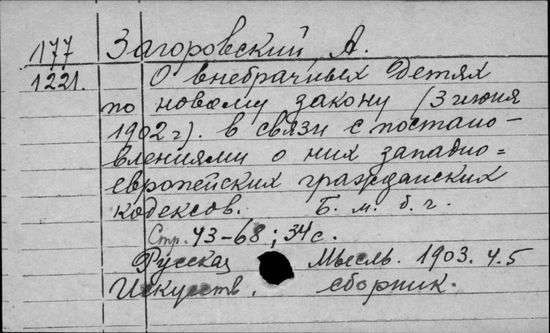 177 Загоровский, А.
1221. О внебрачных детях
по новому закону (3 июня
1902 г). в связи с постано-
влениями о них западно=
европейских гражданских
кодексов. Б. м. б. г.
Стр. 43-68; 34 с.
Русская Мысль. 1903. ч. 5
Искусств. сборник.